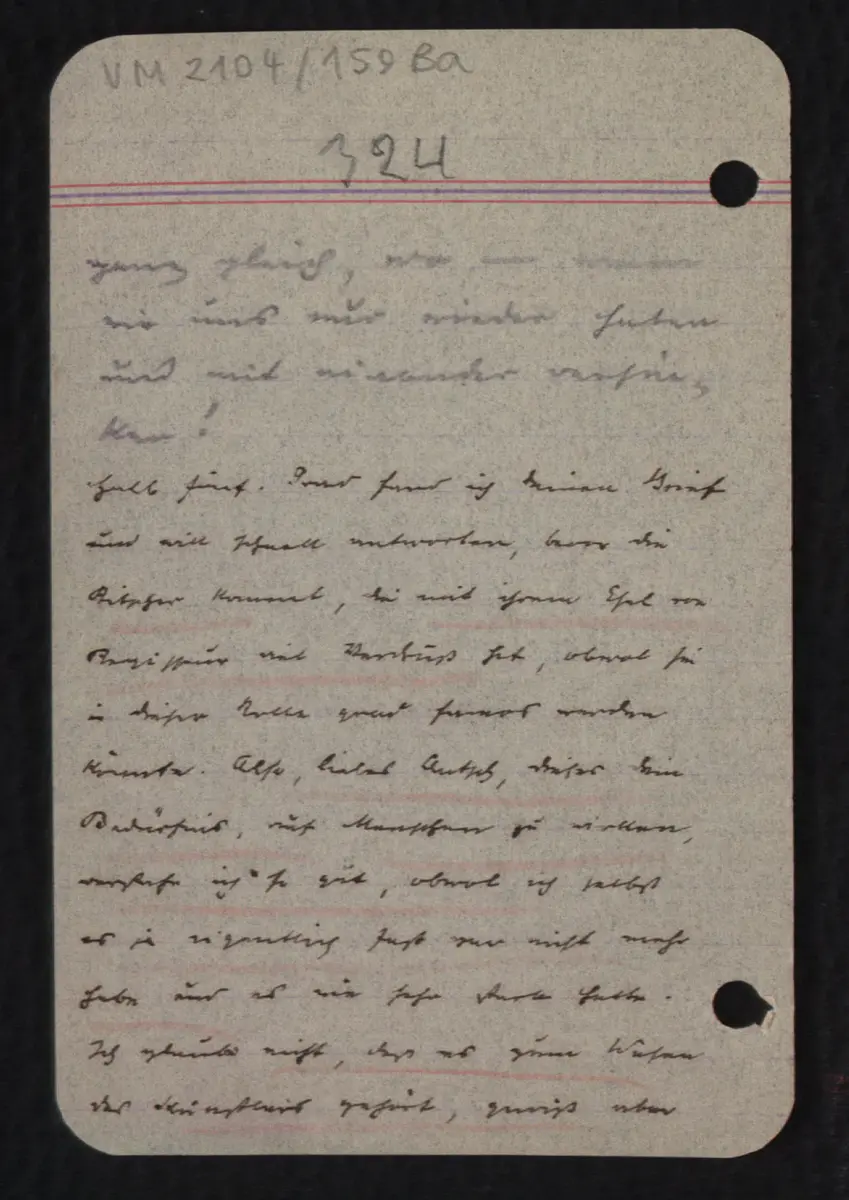 VM 2104/159 Ba
324
ganz gleich, wo wenn
wir uns nur wieder haben
und mit einander
ken!
Halb fünf. Grad fand ich deinen Brief
und will schnell antworten, bevor die
kommt, die mit ihrem Esel von
Regisseur viel Verdruß hat, obwol sie
in dieser Rolle grad famos werden
könnte. Also, liebes dieses dein
Bedürfnis, auf Menschen zu wirken,
verstehe ich so gut, obwol ich selbst
es ja eigentlich fast gar nicht mehr
habe und es nie sehr stark hatte.
Ich glaube nicht, dass es zum Wesen
des Künstlers gehört, gewiß aber